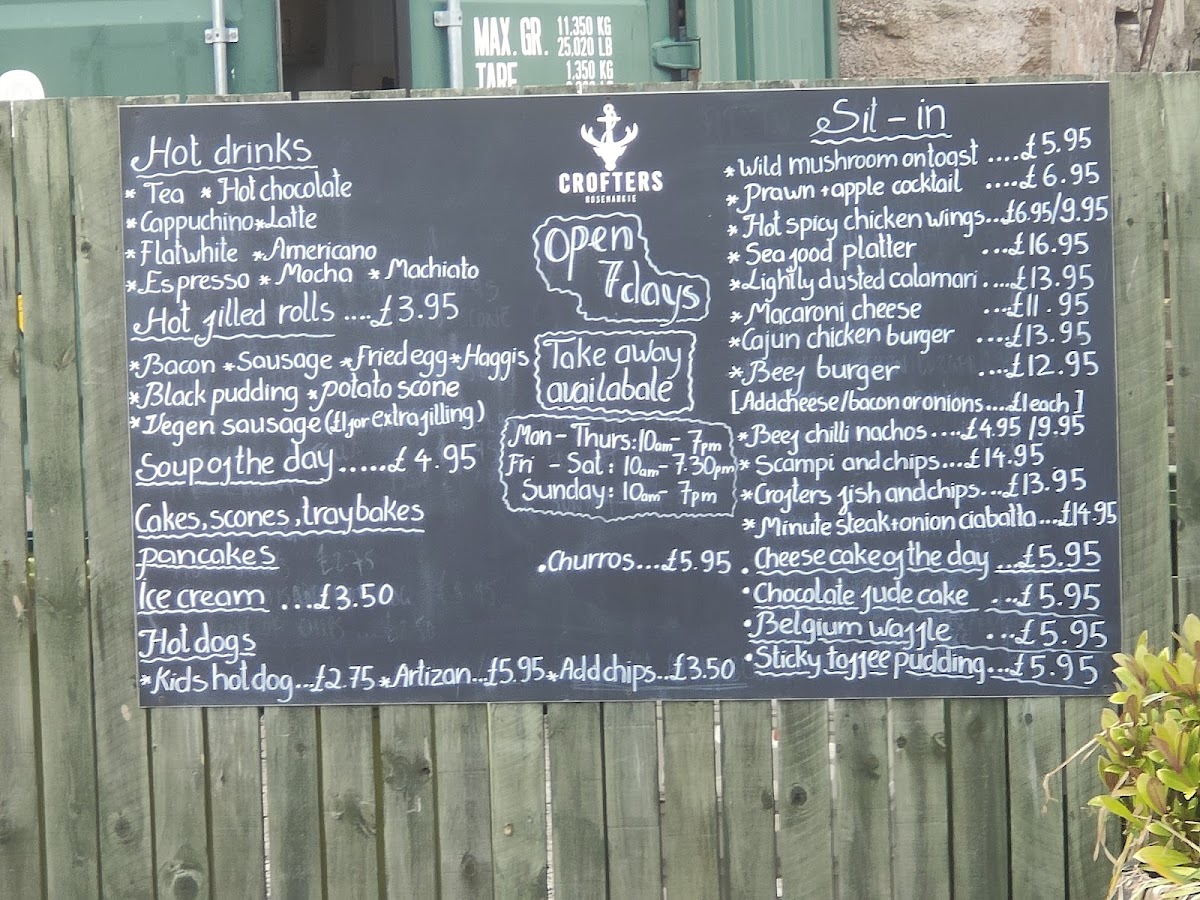 MAX. GR. 11,350 KG
25,020 LB
TARE 1,350 KG
Hot drinks
* Tea * Hot chocolate
* Cappuchino * Latte
* Flatwhite * Americano
* Espresso * Mocha * Machiato
Hot filled rolls ....£3.95
* Bacon * Sausage * Fried egg * Haggis
* Black pudding * potato scone
* Vegen sausage (£1 for extra filling)
Soup of the day ......£4.95
Cakes, scones, traybakes
pancakes
Ice cream ...£3.50
Hot dogs
* Kids hot dog...£2.75 * Artizan...£5.95 * Add chips...£3.50
CROFTERS
ROSEMARKIE
Open
7 days
Take away
availabale
Mon - Thurs: 10am - 7pm
Fri - Sat: 10am - 7.30pm
Sunday: 10am - 7pm
. Churros...£5.95
Sit - in
* Wild mushroom on toast ....£5.95
* Prawn + apple cocktail .....£6.95
* Hot spicy chicken wings...£6.95/9.95
* Seafood platter ...£16.95
* Lightly dusted calamari ....£13.95
* Macaroni cheese ...£11.95
* Cajun chicken burger ....£13.95
* Beef burger ....£12.95
[Add cheese/bacon or onions....£1 each]
* Beef chilli nachos ....£4.95 /9.95
* Scampi and chips...£14.95
* Crofters fish and chips...£13.95
* Minute steak + onion ciabatta...£14.95
. Cheese cake of the day ...£5.95
. Chocolate fude cake ...£5.95
. Belgium waffle ...£5.95
. Sticky toffee pudding...£5.95